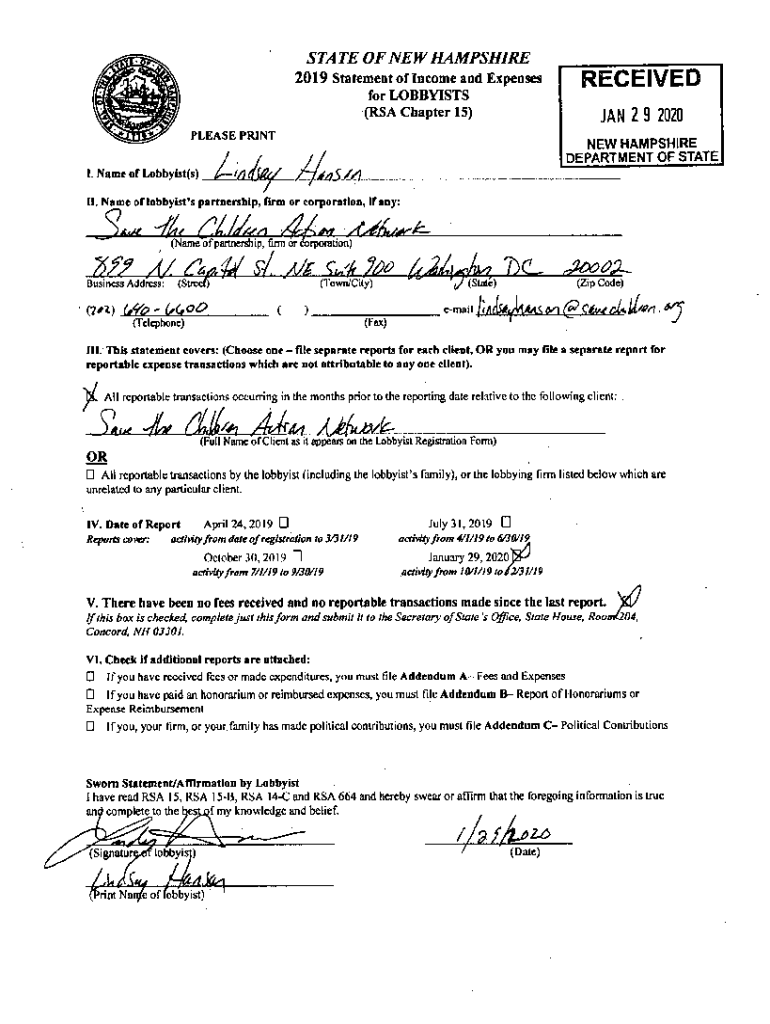 STATE OF NEW HAMPSHIRE
2019 Statement of Income and Expenses
for LOBBYISTS
(RSA Chapter 15)
RECEIVED
JAN 29 2020
NEW HAMPSHIRE
DEPARTMENT OF STATE
PLEASE PRINT
I. Name of Lobbyist(s) Lindsay Hansen
II. Name of lobbyist's partnership, firm or corporation, if any:
Save the Children Action Network
(Name of partnership, firm or corporation)
899 N. Capitol St. NE Suite 900 Washington DC 20002
Business Address: (Street) (Town/City) (State) (Zip Code)
(202) 640-6600 ( ) e-mail lindsayhanson@savechildren.org
(Telephone) (Fax)
III. This statement covers: (Choose one – file separate reports for each client, OR you may file a separate report for
reportable expense transactions which are not attributable to any one client).
All reportable transactions occurring in the months prior to the reporting date relative to the following client:
Save the Children Action Network
(Full Name of Client as it appears on the Lobbyist Registration Form)
OR
☐ All reportable transactions by the lobbyist (including the lobbyist's family), or the lobbying firm listed below which are
unrelated to any particular client.
IV. Date of Report April 24, 2019 ☐ July 31, 2019 ☐
Reports cover: activity from date of registration to 3/31/19 activity from 4/1/19 to 6/30/19
October 30, 2019 ☐ January 29, 2020 ☒
activity from 7/1/19 to 9/30/19 activity from 10/1/19 to 12/31/19
V. There have been no fees received and no reportable transactions made since the last report. ☒
If this box is checked, complete just this form and submit it to the Secretary of State's Office, State House, Room 204,
Concord, NH 03301.
VI. Check if additional reports are attached:
☐ If you have received fees or made expenditures, you must file Addendum A– Fees and Expenses
☐ If you have paid an honorarium or reimbursed expenses, you must file Addendum B– Report of Honorariums or
Expense Reimbursement
☐ If you, your firm, or your family has made political contributions, you must file Addendum C– Political Contributions
Sworn Statement/Affirmation by Lobbyist
I have read RSA 15, RSA 15-B, RSA 14-C and RSA 664 and hereby swear or affirm that the foregoing information is true
and complete to the best of my knowledge and belief.
1/29/2020
(Signature of lobbyist) (Date)
Lindsay Hansen
(Print Name of lobbyist)